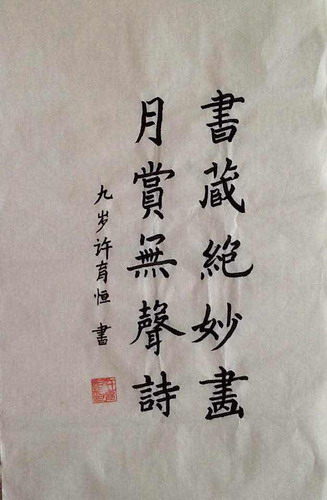 書藏絶妙畫
月賞無聲詩
九岁许育恒書